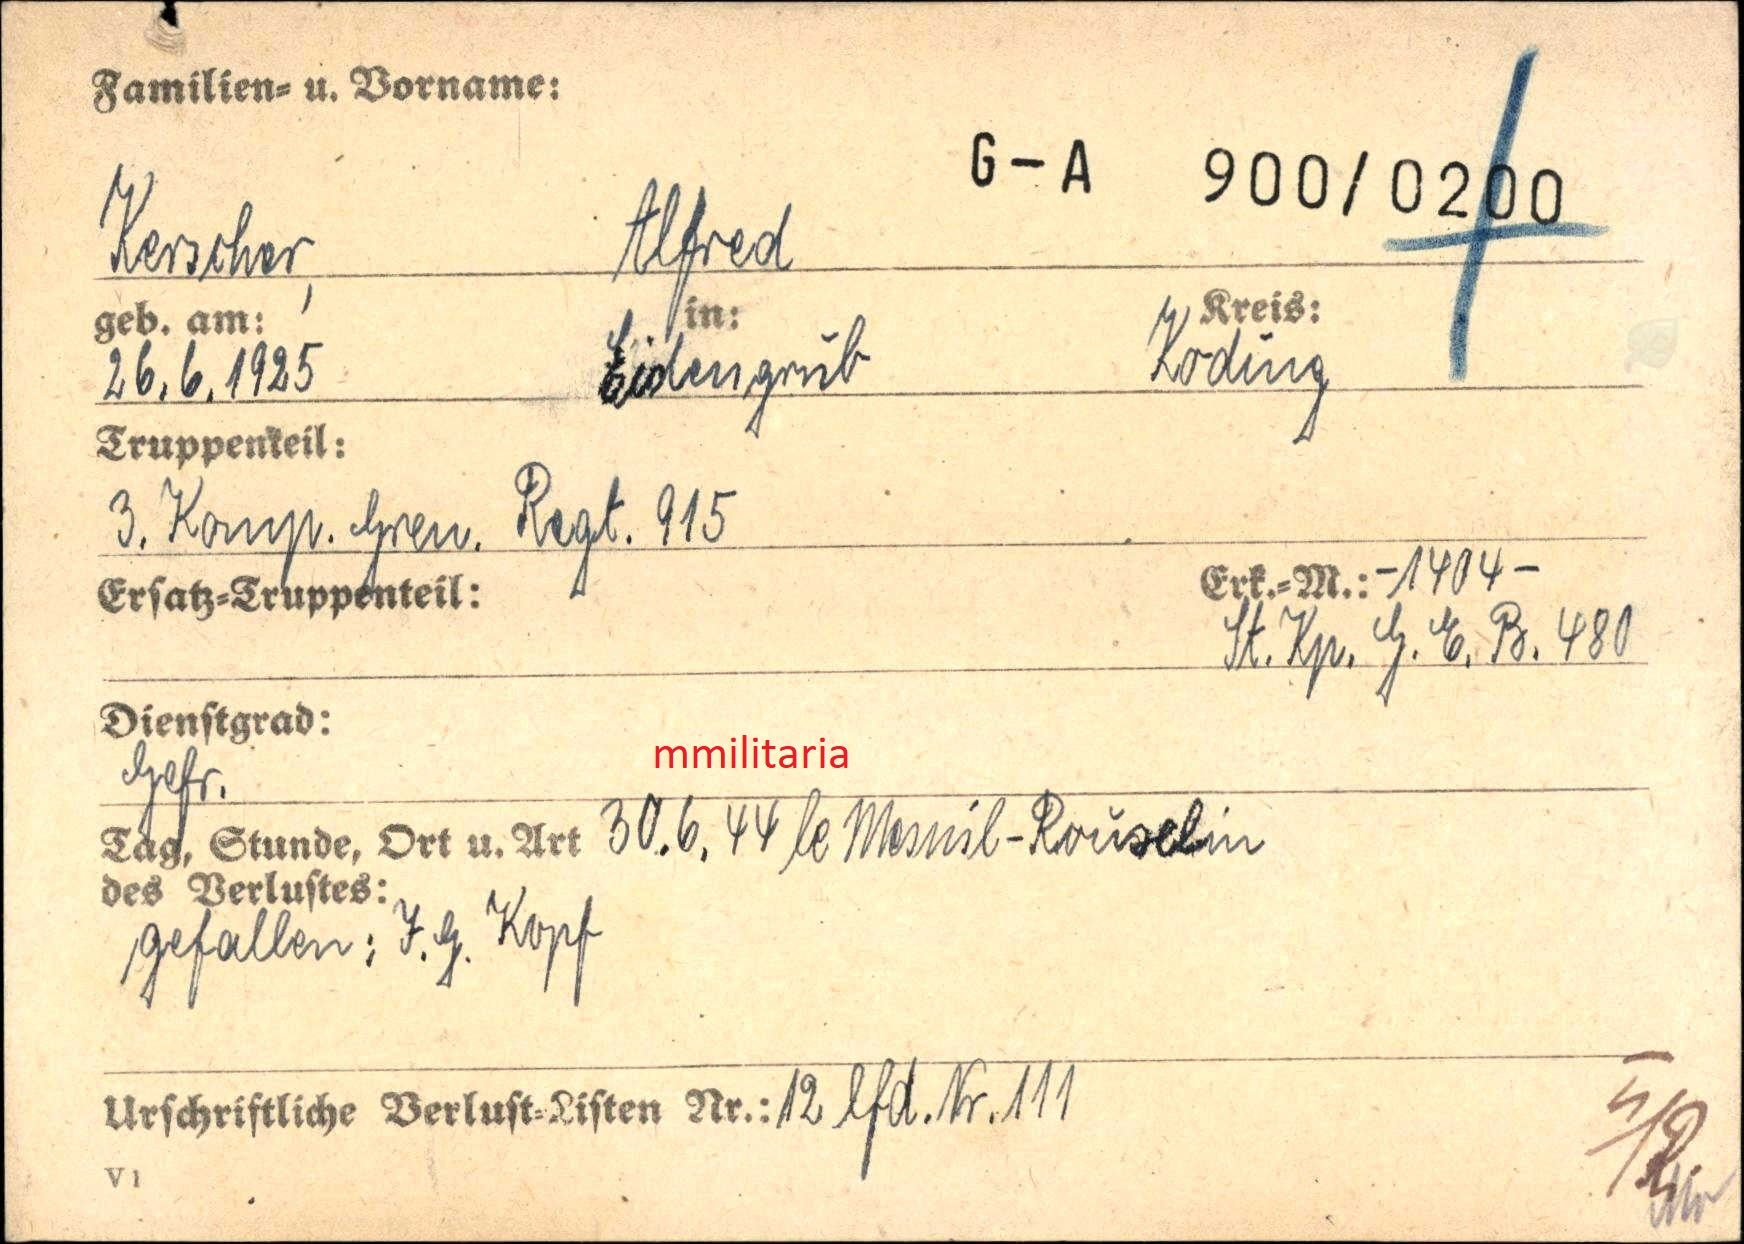 Familien- u. Vorname:
G-A 900/0200
Kerscher, Alfred
geb. am: in: Kreis:
26.6.1925 Eidengrub Koding
Truppenteil:
3. Komp. Gren. Regt. 915
Ersatz-Truppenteil: Erk.-M.: -1404-
St. Kp. G. E. B. 480
Dienstgrad:
Gefr.
mmilitaria
Tag, Stunde, Ort u. Art 30.6.44 le Mesnil-Rouselin
des Verlustes:
gefallen; I.G. Kopf
Urschriftliche Verlust-Listen Nr.: 12 lfd. Nr. 111
V 1